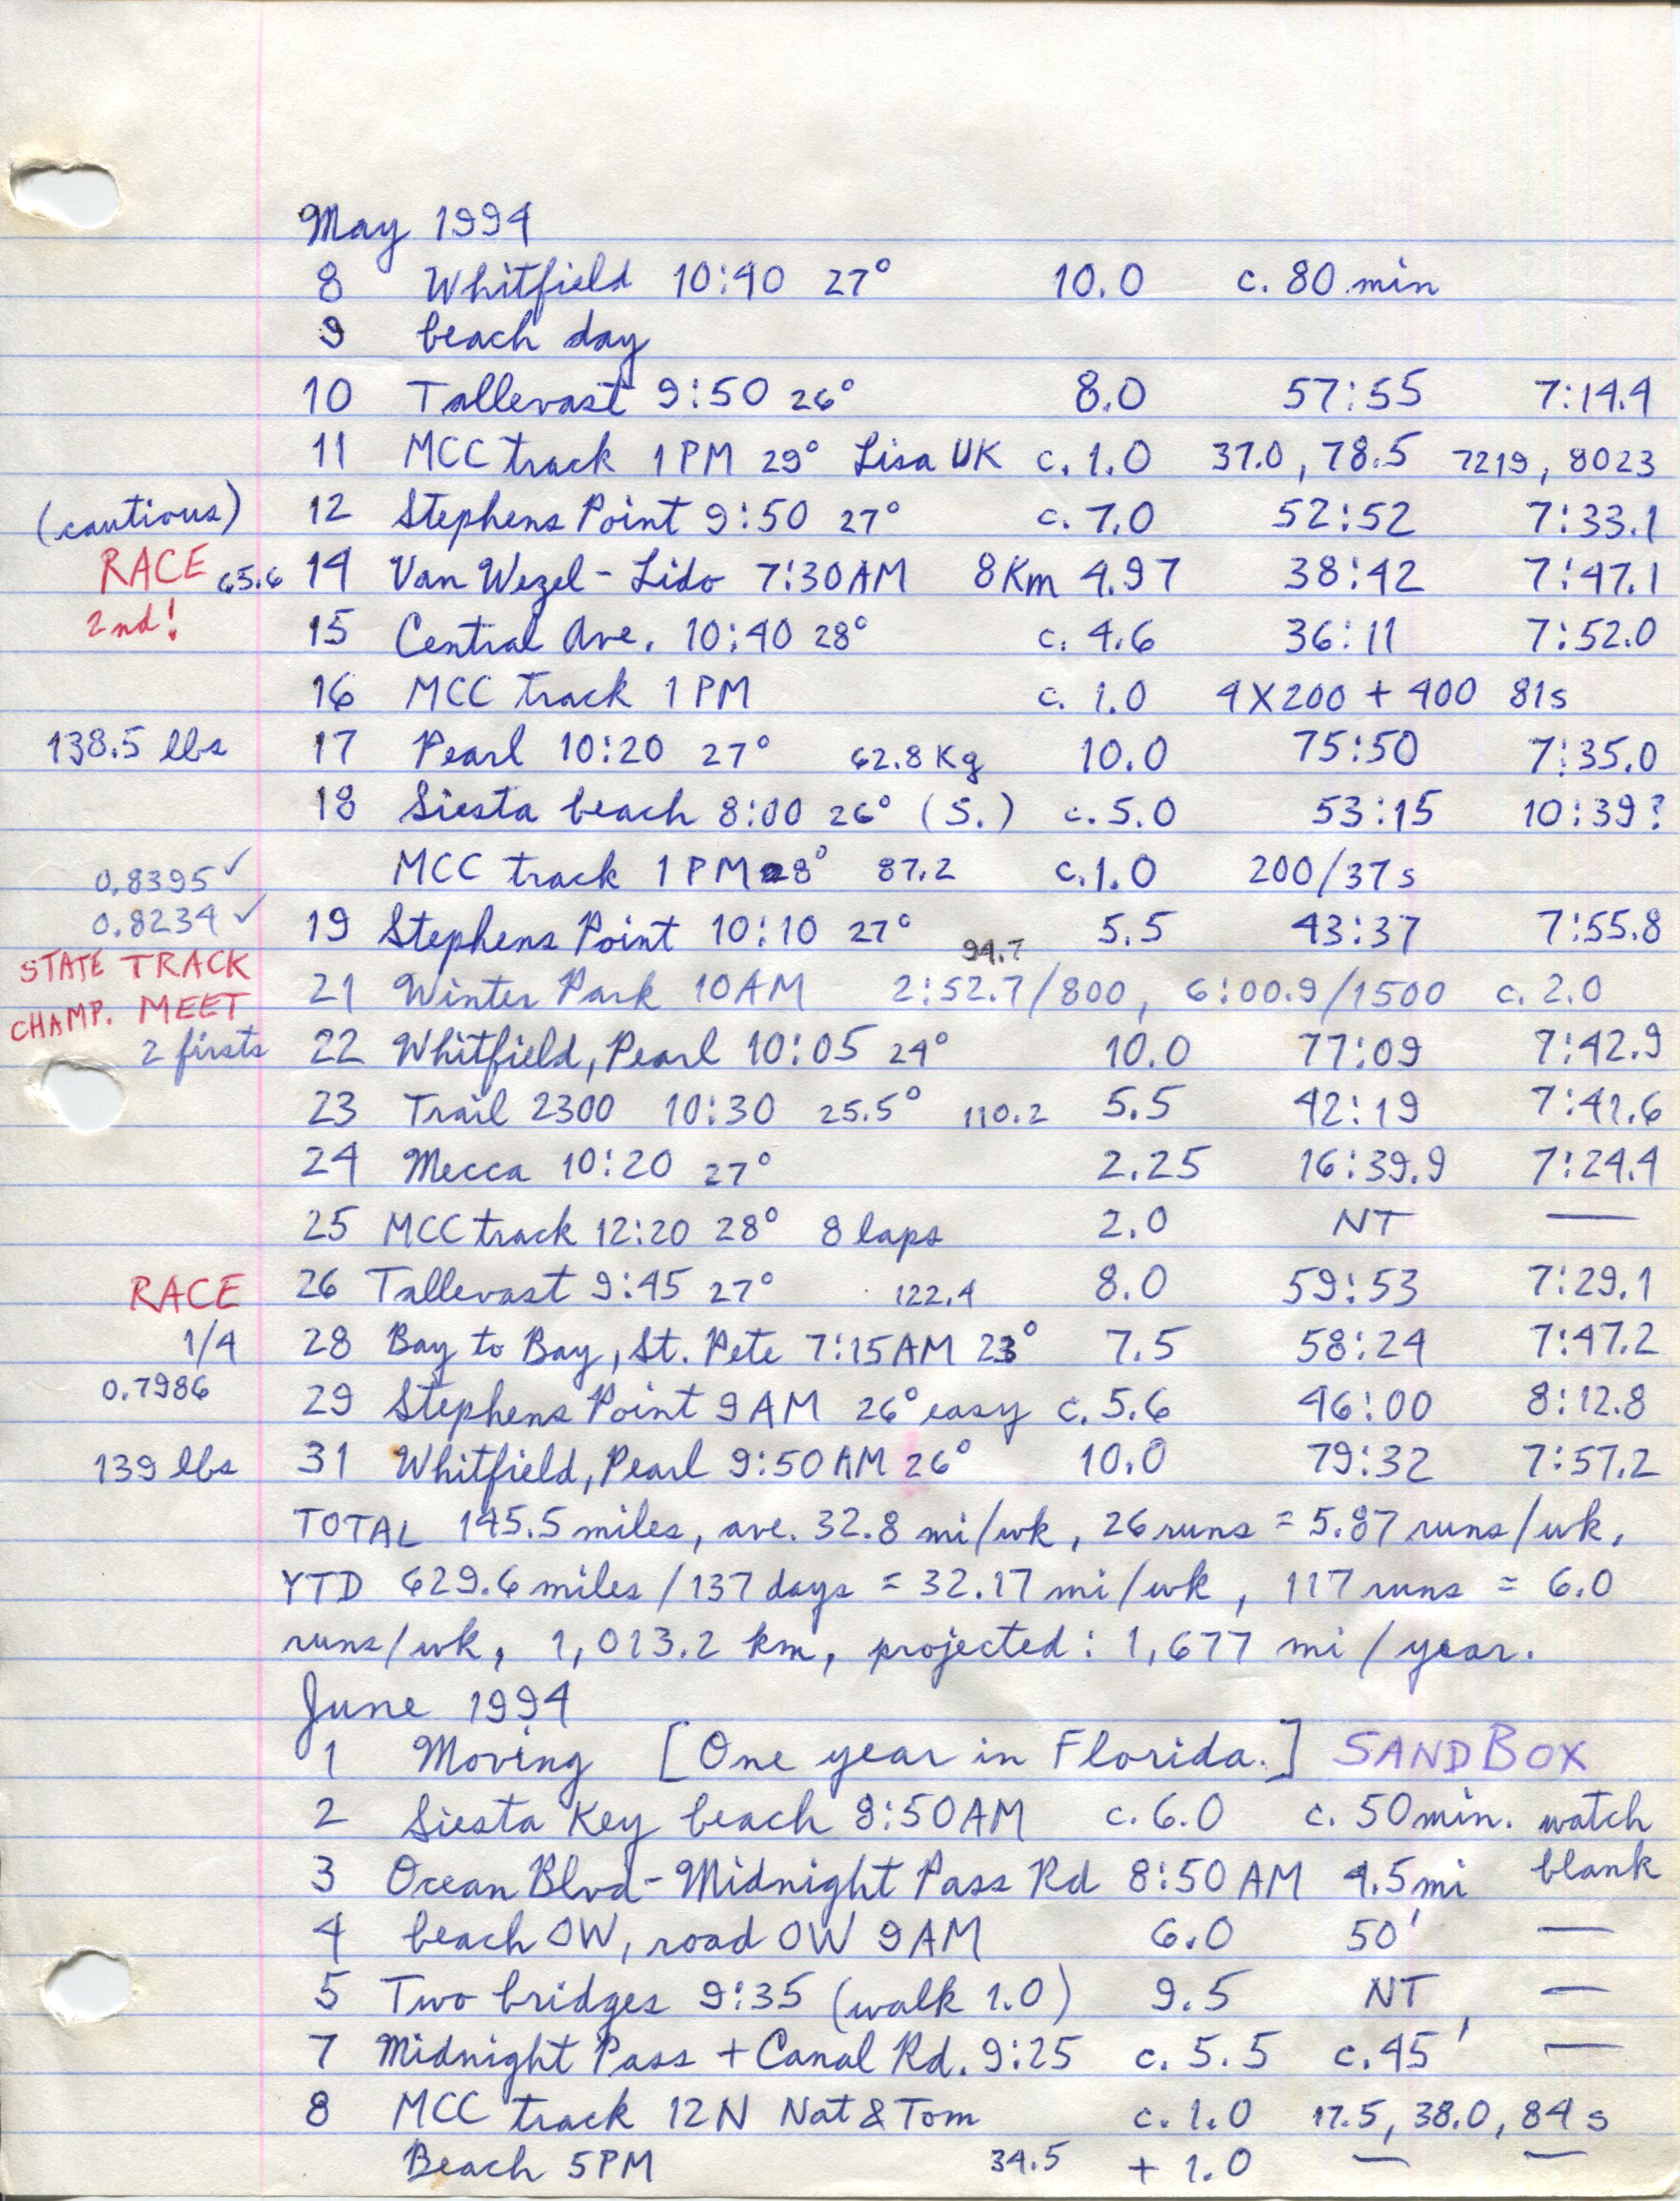 May 1994
8 Whitfield 10:40 27° 10.0 c. 80 min
9 beach day
10 Tallevast 9:50 26° 8.0 57:55 7:14.4
11 MCC track 1 PM 29° Lisa UK c. 1.0 37.0, 78.5 7219, 8023
(cautious) 12 Stephens Point 9:50 27° c. 7.0 52:52 7:33.1
RACE 65.6 14 Van Wezel - Lido 7:30 AM 8 Km 4.97 38:42 7:47.1
2nd! 15 Central Ave. 10:40 28° c. 4.6 36:11 7:52.0
16 MCC track 1 PM c. 1.0 4 X 200 + 400 81s
138.5 lbs 17 Pearl 10:20 27° 62.8 Kg 10.0 75:50 7:35.0
18 Siesta beach 8:00 26° (S.) c. 5.0 53:15 10:39?
0.8395 ✓ MCC track 1 PM 28° 87.2 c. 1.0 200/37s
0.8234 ✓ 19 Stephens Point 10:10 27° 94.7 5.5 43:37 7:55.8
STATE TRACK
CHAMP. MEET 21 Winter Park 10 AM 2:52.7/800, 6:00.9/1500 c. 2.0
2 firsts 22 Whitfield, Pearl 10:05 24° 10.0 77:09 7:42.9
23 Trail 2300 10:30 25.5° 110.2 5.5 42:19 7:41.6
24 Mecca 10:20 27° 2.25 16:39.9 7:24.4
25 MCC track 12:20 28° 8 laps 2.0 NT —
RACE 26 Tallevast 9:45 27° 122.4 8.0 59:53 7:29.1
1/4 28 Bay to Bay, St. Pete 7:15 AM 23° 7.5 58:24 7:47.2
0.7986 29 Stephens Point 9 AM 26° easy c. 5.6 46:00 8:12.8
139 lbs 31 Whitfield, Pearl 9:50 AM 26° 10.0 79:32 7:57.2
TOTAL 145.5 miles, ave. 32.8 mi/wk, 26 runs = 5.87 runs/wk,
YTD 629.6 miles / 137 days = 32.17 mi/wk, 117 runs = 6.0
runs/wk, 1,013.2 km, projected: 1,677 mi/year.
June 1994
1 Moving [One year in Florida.] SANDBOX
2 Siesta Key beach 8:50 AM c. 6.0 c. 50 min. watch
3 Ocean Blvd - Midnight Pass Rd 8:50 AM 4.5 mi blank
4 beach OW, road OW 9 AM 6.0 50' —
5 Two bridges 9:35 (walk 1.0) 9.5 NT —
7 Midnight Pass + Canal Rd. 9:25 c. 5.5 c. 45' —
8 MCC track 12N Nat & Tom c. 1.0 17.5, 38.0, 84 s
Beach 5 PM 34.5 + 1.0 — —